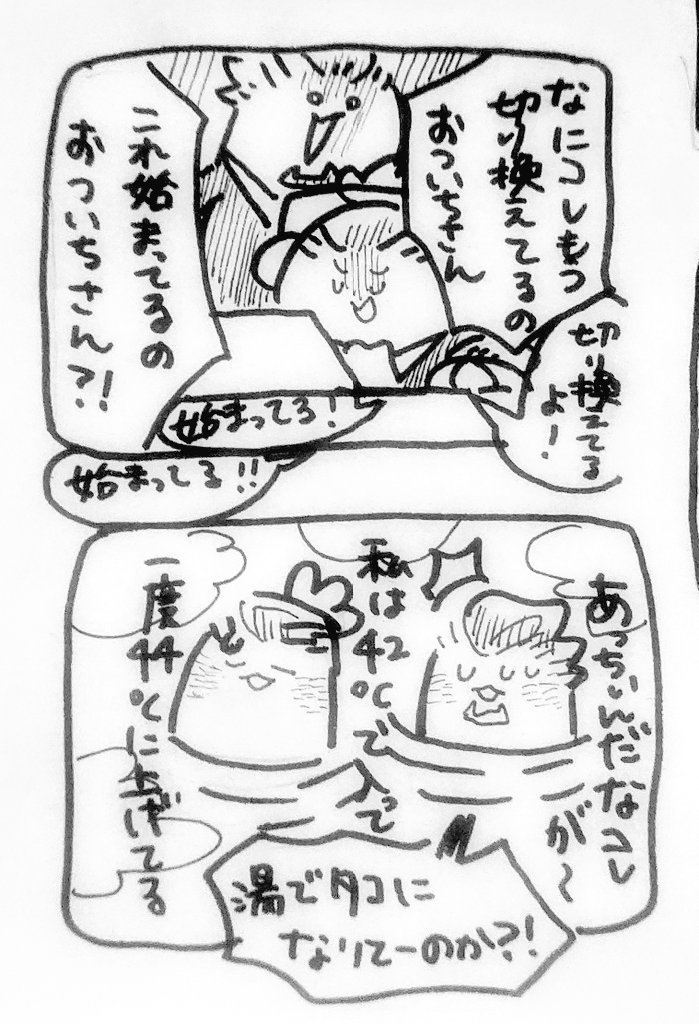 なにコレもう
切り換えてるの
おついちさん
切り換えてる
よ!
これ始まってるの
おついちさん?!
始まってる!
始まってる!!
あっちぃんだなコレ
が〜
私は42℃で入って
一度44℃に上げてる
湯でタコに
なりてーのか?!